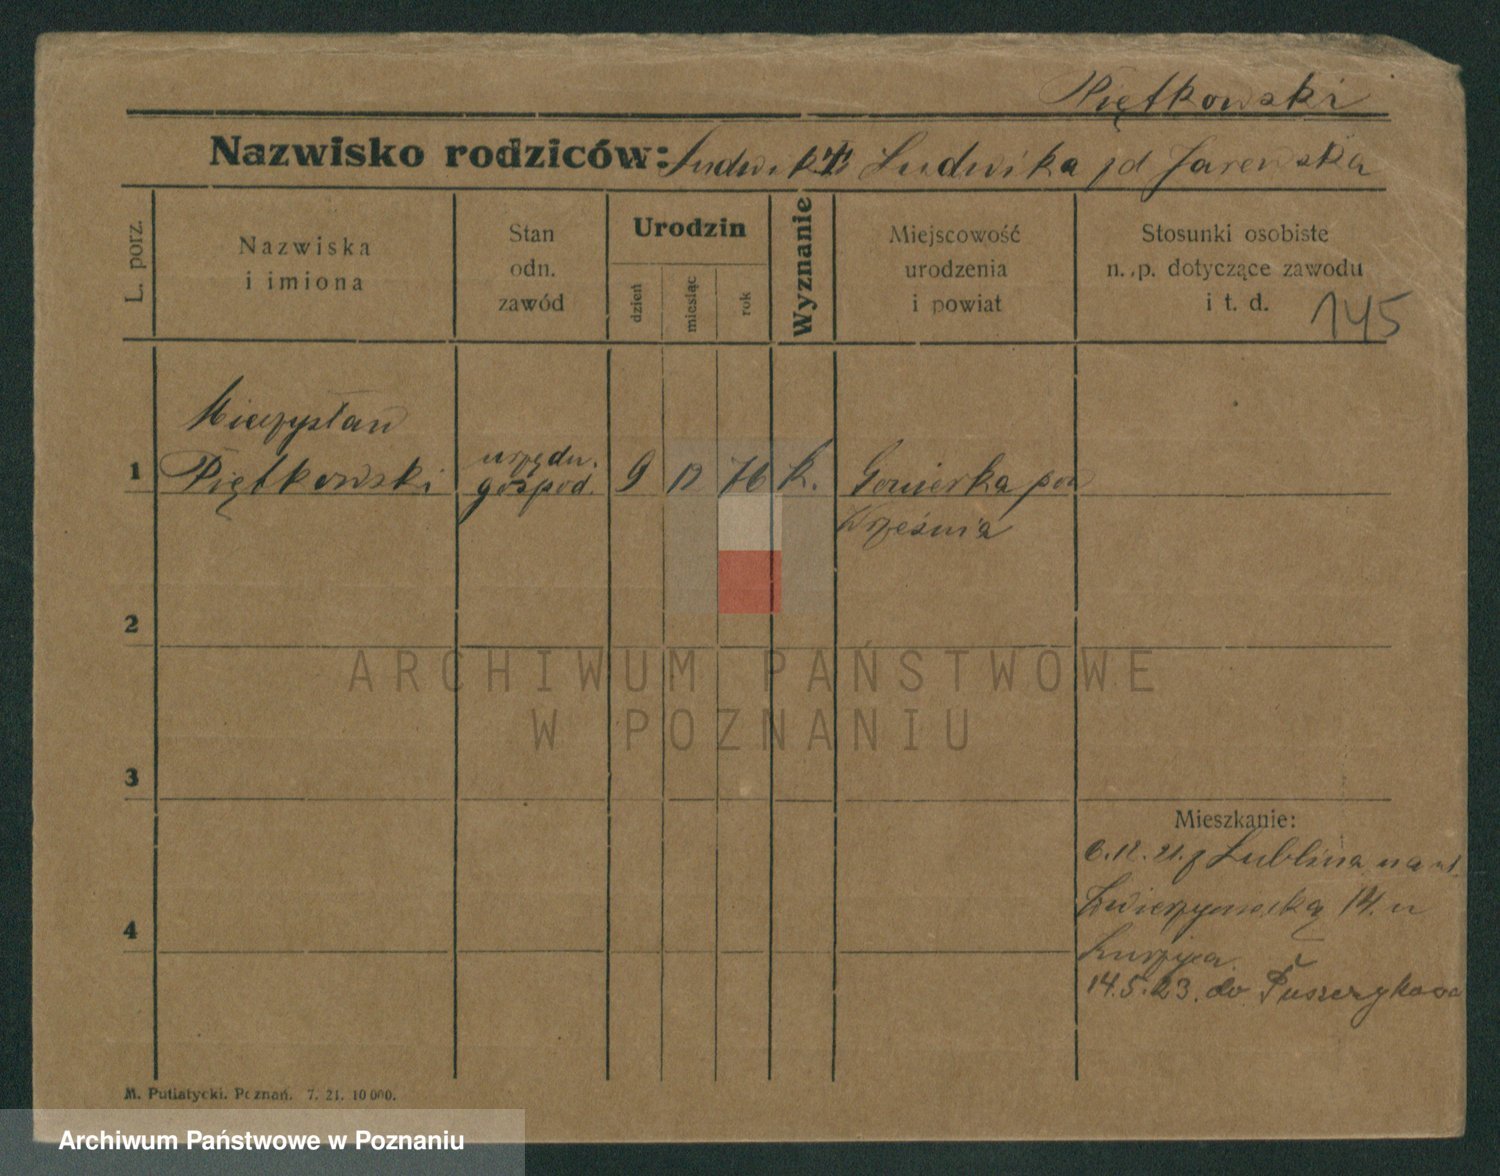 Piętkowski
Nazwisko rodziców: Ludwik i Ludwika
L. porz.
Nazwiska
i imiona
Stan
odn.
zawód
Urodzin
dzień
miesiąc
rok
Wyznanie
Miejscowość
urodzenia
i powiat
Stosunki osobiste
n. p. dotyczące zawodu
i t. d.
145
Mieczysław
1 Piętkowski
urzędn.
gospod.
9 12 76 k.
Gonierka pow
Września
2
3
4
Mieszkanie:
6.12.21. z Lublina na ul.
Zwierzyniecką 14. u
14.5.23. do Puszczykowa
ARCHIWUM PAŃSTWOWE
W POZNANIU
M. Putiatycki. Poznań. 7. 21. 10 000.
Archiwum Państwowe w Poznaniu